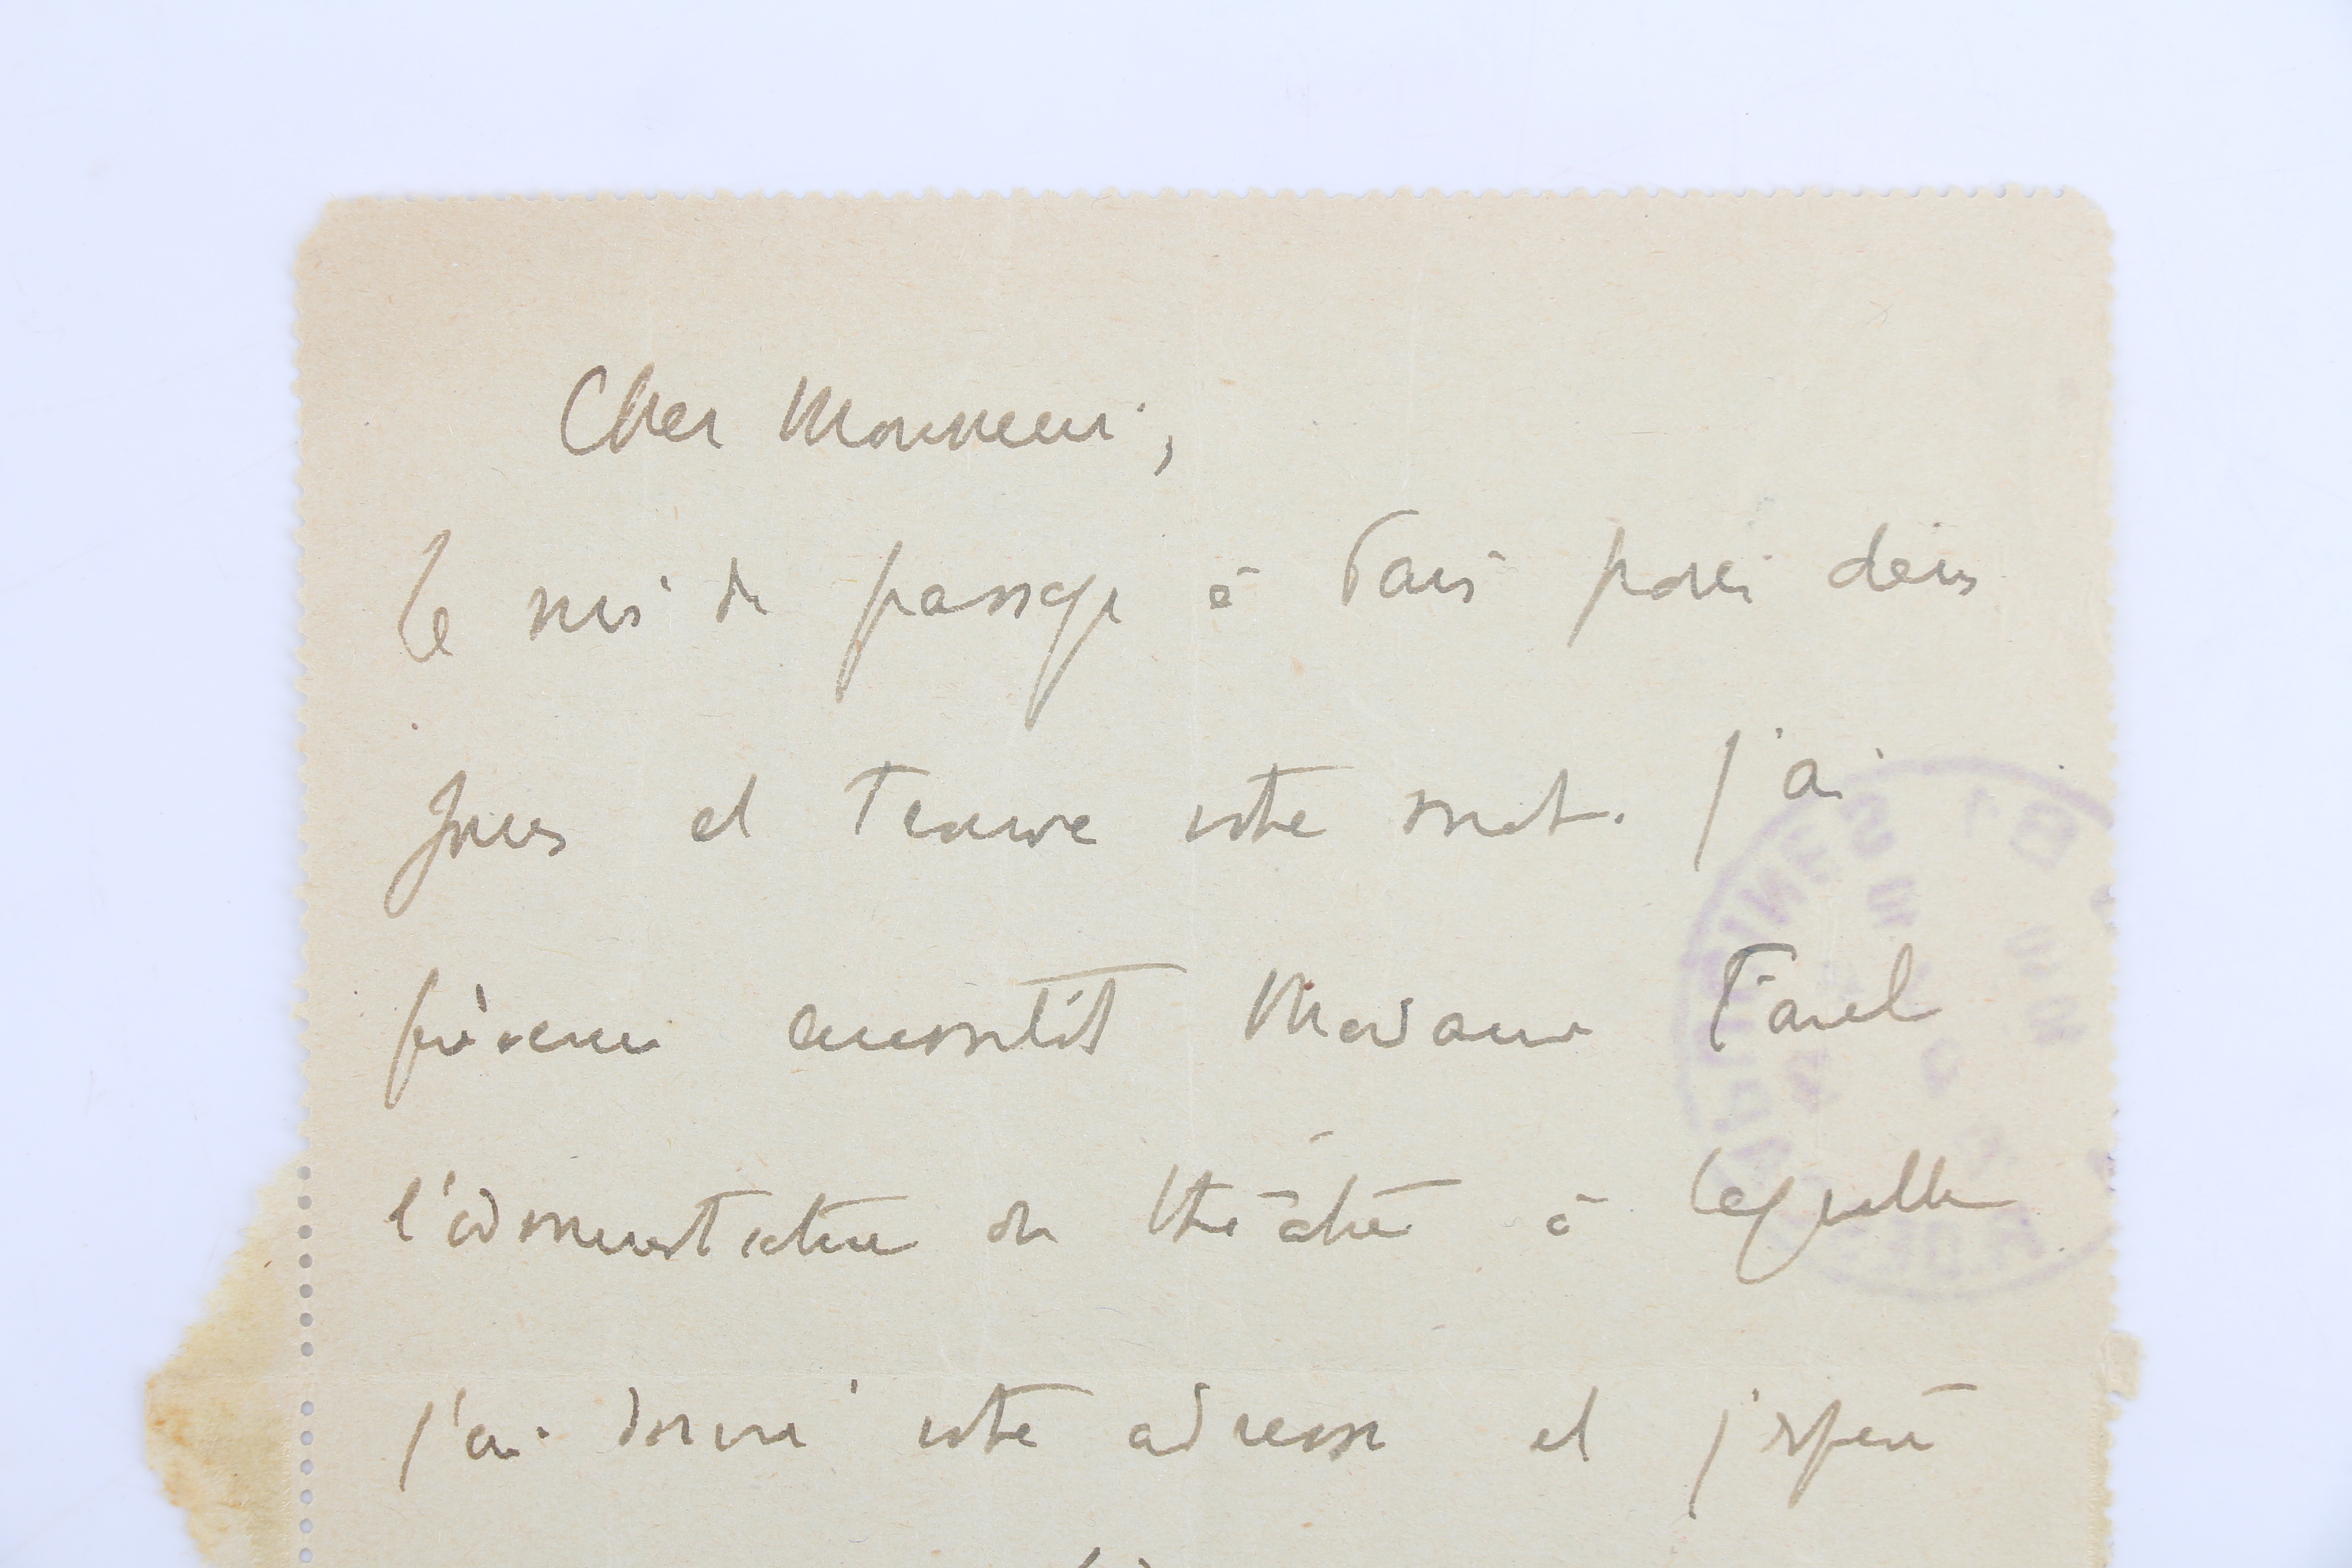 Cher Monsieur,
Je suis de passage à Paris pour deux
jours et trouve votre mot. J'ai
prévenu aussitôt Madame
l'administratrice du théâtre à laquelle
j'ai donné votre adresse et j'espère